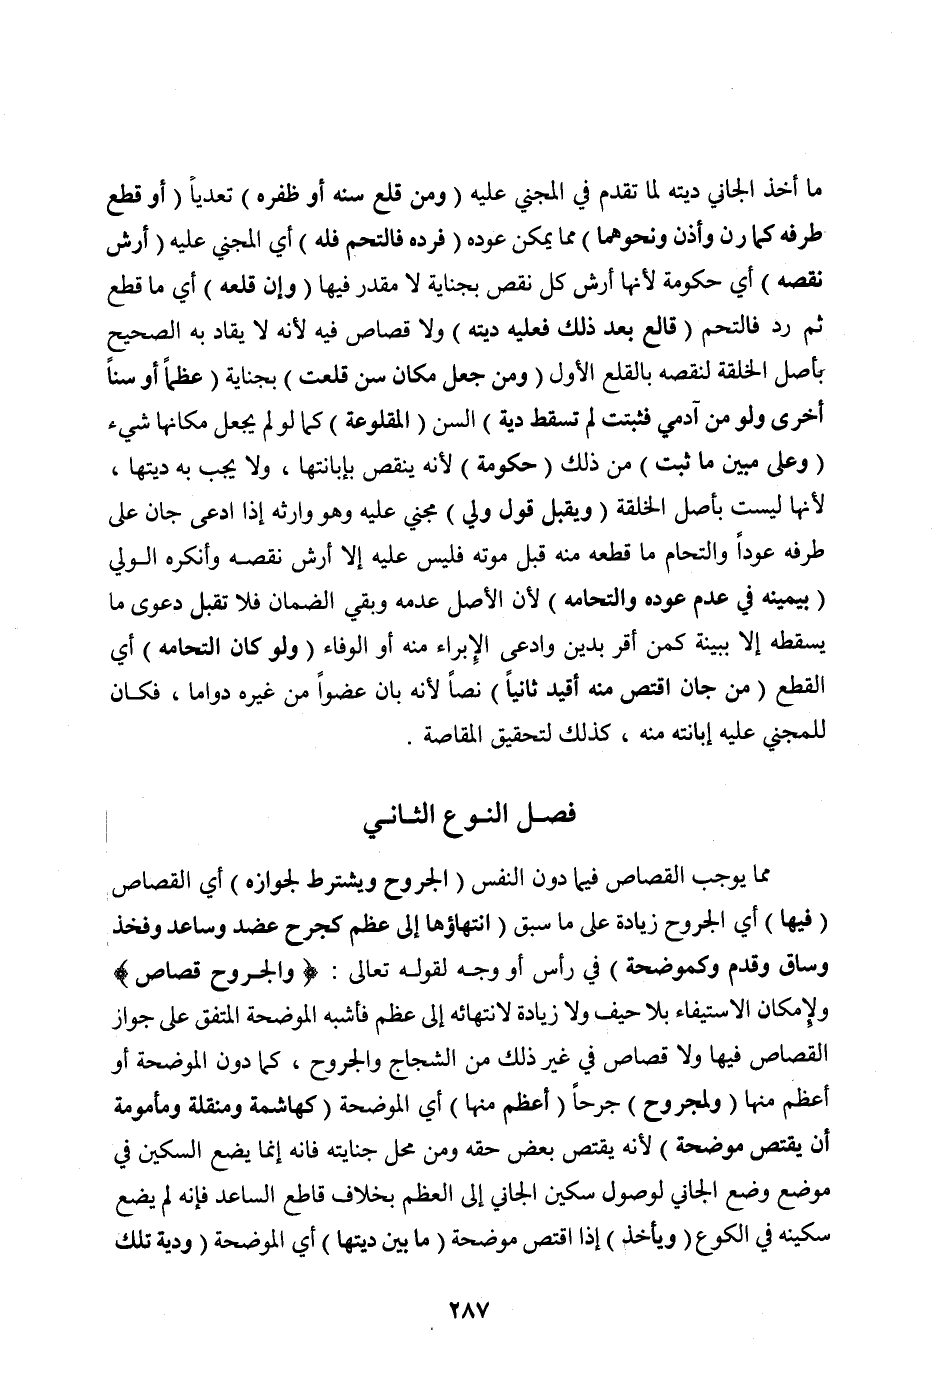 ما أخذ الجاني ديته لما تقدم في المجني عليه ( ومن قلع سنه أو ظفره ) تعدياً ( أو قطع
طرفه كمارن وأذن ونحوهما ) مما يمكن عوده ( فرده فالتحم فله ) أي المجني عليه ( أرش
نقصه ) أي حكومة لأنها أرش كل نقص بجناية لا مقدر فيها ( وإن قلعه ) أي ما قطع
ثم رد فالتحم ( قالع بعد ذلك فعليه ديته ) ولا قصاص فيه لأنه لا يقاد به الصحيح
بأصل الخلقة لنقصه بالقلع الأول ( ومن جعل مكان سن قلعت ) بجناية ( عظماً أو سناً
أخرى ولو من آدمي فثبتت لم تسقط دية ) السن ( المقلوعة ) كما لو لم يجعل مكانها شيء
( وعلى مبين ما ثبت ) من ذلك ( حكومة ) لأنه ينقص بإبانتها ، ولا يجب به ديتها ،
لأنها ليست بأصل الخلقة ( ويقبل قول ولي ) مجني عليه وهو وارثه إذا ادعى جان على
طرفه عوداً والتحام ما قطعه منه قبل موته فليس عليه إلا أرش نقصه وأنكره الولي
( بيمينه في عدم عوده والتحامه ) لأن الأصل عدمه وبقي الضمان فلا تقبل دعوى ما
يسقطه إلا ببينة كمن أقر بدين وادعى الإبراء منه أو الوفاء ( ولو كان التحامه ) أي
القطع ( من جان اقتص منه أقيد ثانياً ) نصاً لأنه بان عضواً من غيره دواما ، فكان
للمجني عليه إبانته منه ، كذلك لتحقيق المقاصة .
فصل النوع الثاني
مما يوجب القصاص فيما دون النفس ( الجروح ويشترط لجوازه ) أي القصاص
( فيها ) أي الجروح زيادة على ما سبق ( انتهاؤها إلى عظم كجرح عضد وساعد وفخذ
وساق وقدم وكموضحة ) في رأس أو وجه لقوله تعالى : ﴿ والجروح قصاص ﴾
ولإمكان الاستيفاء بلا حيف ولا زيادة لانتهائه إلى عظم فأشبه الموضحة المتفق على جواز
القصاص فيها ولا قصاص في غير ذلك من الشجاج والجروح ، كما دون الموضحة أو
أعظم منها ( ولمجروح ) جرحاً ( أعظم منها ) أي الموضحة ( كهاشمة ومنقلة ومأمومة
أن يقتص موضحة ) لأنه يقتص بعض حقه ومن محل جنايته فانه إنما يضع السكين في
موضع وضع الجاني لوصول سكين الجاني إلى العظم بخلاف قاطع الساعد فإنه لم يضع
سكينه في الكوع ( ويأخذ ) إذا اقتص موضحة ( ما بين ديتها ) أي الموضحة ( ودية تلك
٢٨٧